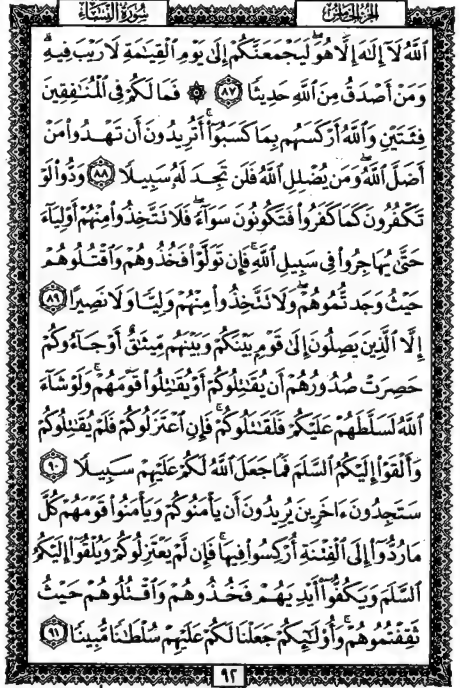 الجزء الخامس سورة النساء
ٱللَّهُ لَآ إِلَٰهَ إِلَّا هُوَ ۚ لَيَجْمَعَنَّكُمْ إِلَىٰ يَوْمِ ٱلْقِيَٰمَةِ لَا رَيْبَ فِيهِ ۗ
وَمَنْ أَصْدَقُ مِنَ ٱللَّهِ حَدِيثًا ﴿٨٧﴾ ۞ فَمَا لَكُمْ فِى ٱلْمُنَٰفِقِينَ
فِئَتَيْنِ وَٱللَّهُ أَرْكَسَهُم بِمَا كَسَبُوٓا۟ ۚ أَتُرِيدُونَ أَن تَهْدُوا۟ مَنْ
أَضَلَّ ٱللَّهُ ۖ وَمَن يُضْلِلِ ٱللَّهُ فَلَن تَجِدَ لَهُۥ سَبِيلًا ﴿٨٨﴾ وَدُّوا۟ لَوْ
تَكْفُرُونَ كَمَا كَفَرُوا۟ فَتَكُونُونَ سَوَآءً ۖ فَلَا تَتَّخِذُوا۟ مِنْهُمْ أَوْلِيَآءَ
حَتَّىٰ يُهَاجِرُوا۟ فِى سَبِيلِ ٱللَّهِ ۚ فَإِن تَوَلَّوْا۟ فَخُذُوهُمْ وَٱقْتُلُوهُمْ
حَيْثُ وَجَدتُّمُوهُمْ ۖ وَلَا تَتَّخِذُوا۟ مِنْهُمْ وَلِيًّا وَلَا نَصِيرًا ﴿٨٩﴾
إِلَّا ٱلَّذِينَ يَصِلُونَ إِلَىٰ قَوْمٍۭ بَيْنَكُمْ وَبَيْنَهُم مِّيثَٰقٌ أَوْ جَآءُوكُمْ
حَصِرَتْ صُدُورُهُمْ أَن يُقَٰتِلُوكُمْ أَوْ يُقَٰتِلُوا۟ قَوْمَهُمْ ۚ وَلَوْ شَآءَ
ٱللَّهُ لَسَلَّطَهُمْ عَلَيْكُمْ فَلَقَٰتَلُوكُمْ ۚ فَإِنِ ٱعْتَزَلُوكُمْ فَلَمْ يُقَٰتِلُوكُمْ
وَأَلْقَوْا۟ إِلَيْكُمُ ٱلسَّلَمَ فَمَا جَعَلَ ٱللَّهُ لَكُمْ عَلَيْهِمْ سَبِيلًا ﴿٩٠﴾
سَتَجِدُونَ ءَاخَرِينَ يُرِيدُونَ أَن يَأْمَنُوكُمْ وَيَأْمَنُوا۟ قَوْمَهُمْ كُلَّ
مَا رُدُّوٓا۟ إِلَى ٱلْفِتْنَةِ أُرْكِسُوا۟ فِيهَا ۚ فَإِن لَّمْ يَعْتَزِلُوكُمْ وَيُلْقُوٓا۟ إِلَيْكُمُ
ٱلسَّلَمَ وَيَكُفُّوٓا۟ أَيْدِيَهُمْ فَخُذُوهُمْ وَٱقْتُلُوهُمْ حَيْثُ
ثَقِفْتُمُوهُمْ ۚ وَأُو۟لَٰٓئِكُمْ جَعَلْنَا لَكُمْ عَلَيْهِمْ سُلْطَٰنًا مُّبِينًا ﴿٩١﴾
٩٢